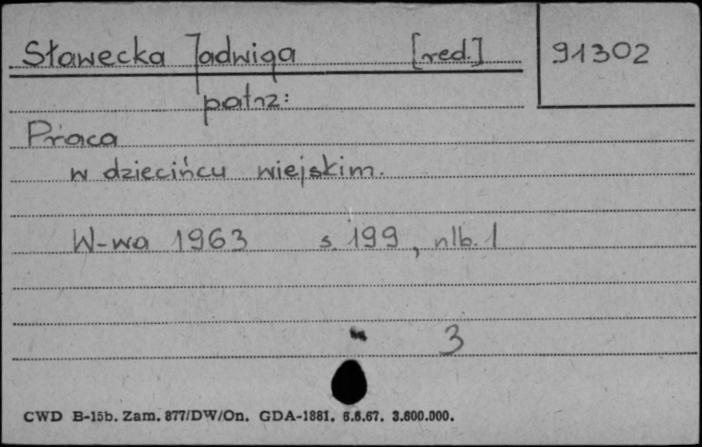 Sławecka Jadwiga [red.] 91302
patrz:
Praca
w dziecińcu wiejskim.
W-wa 1963 s. 199, nlb. 1
3
CWD B-15b. Zam. 877/DW/On. GDA-1881. 6.6.67. 3.600.000.